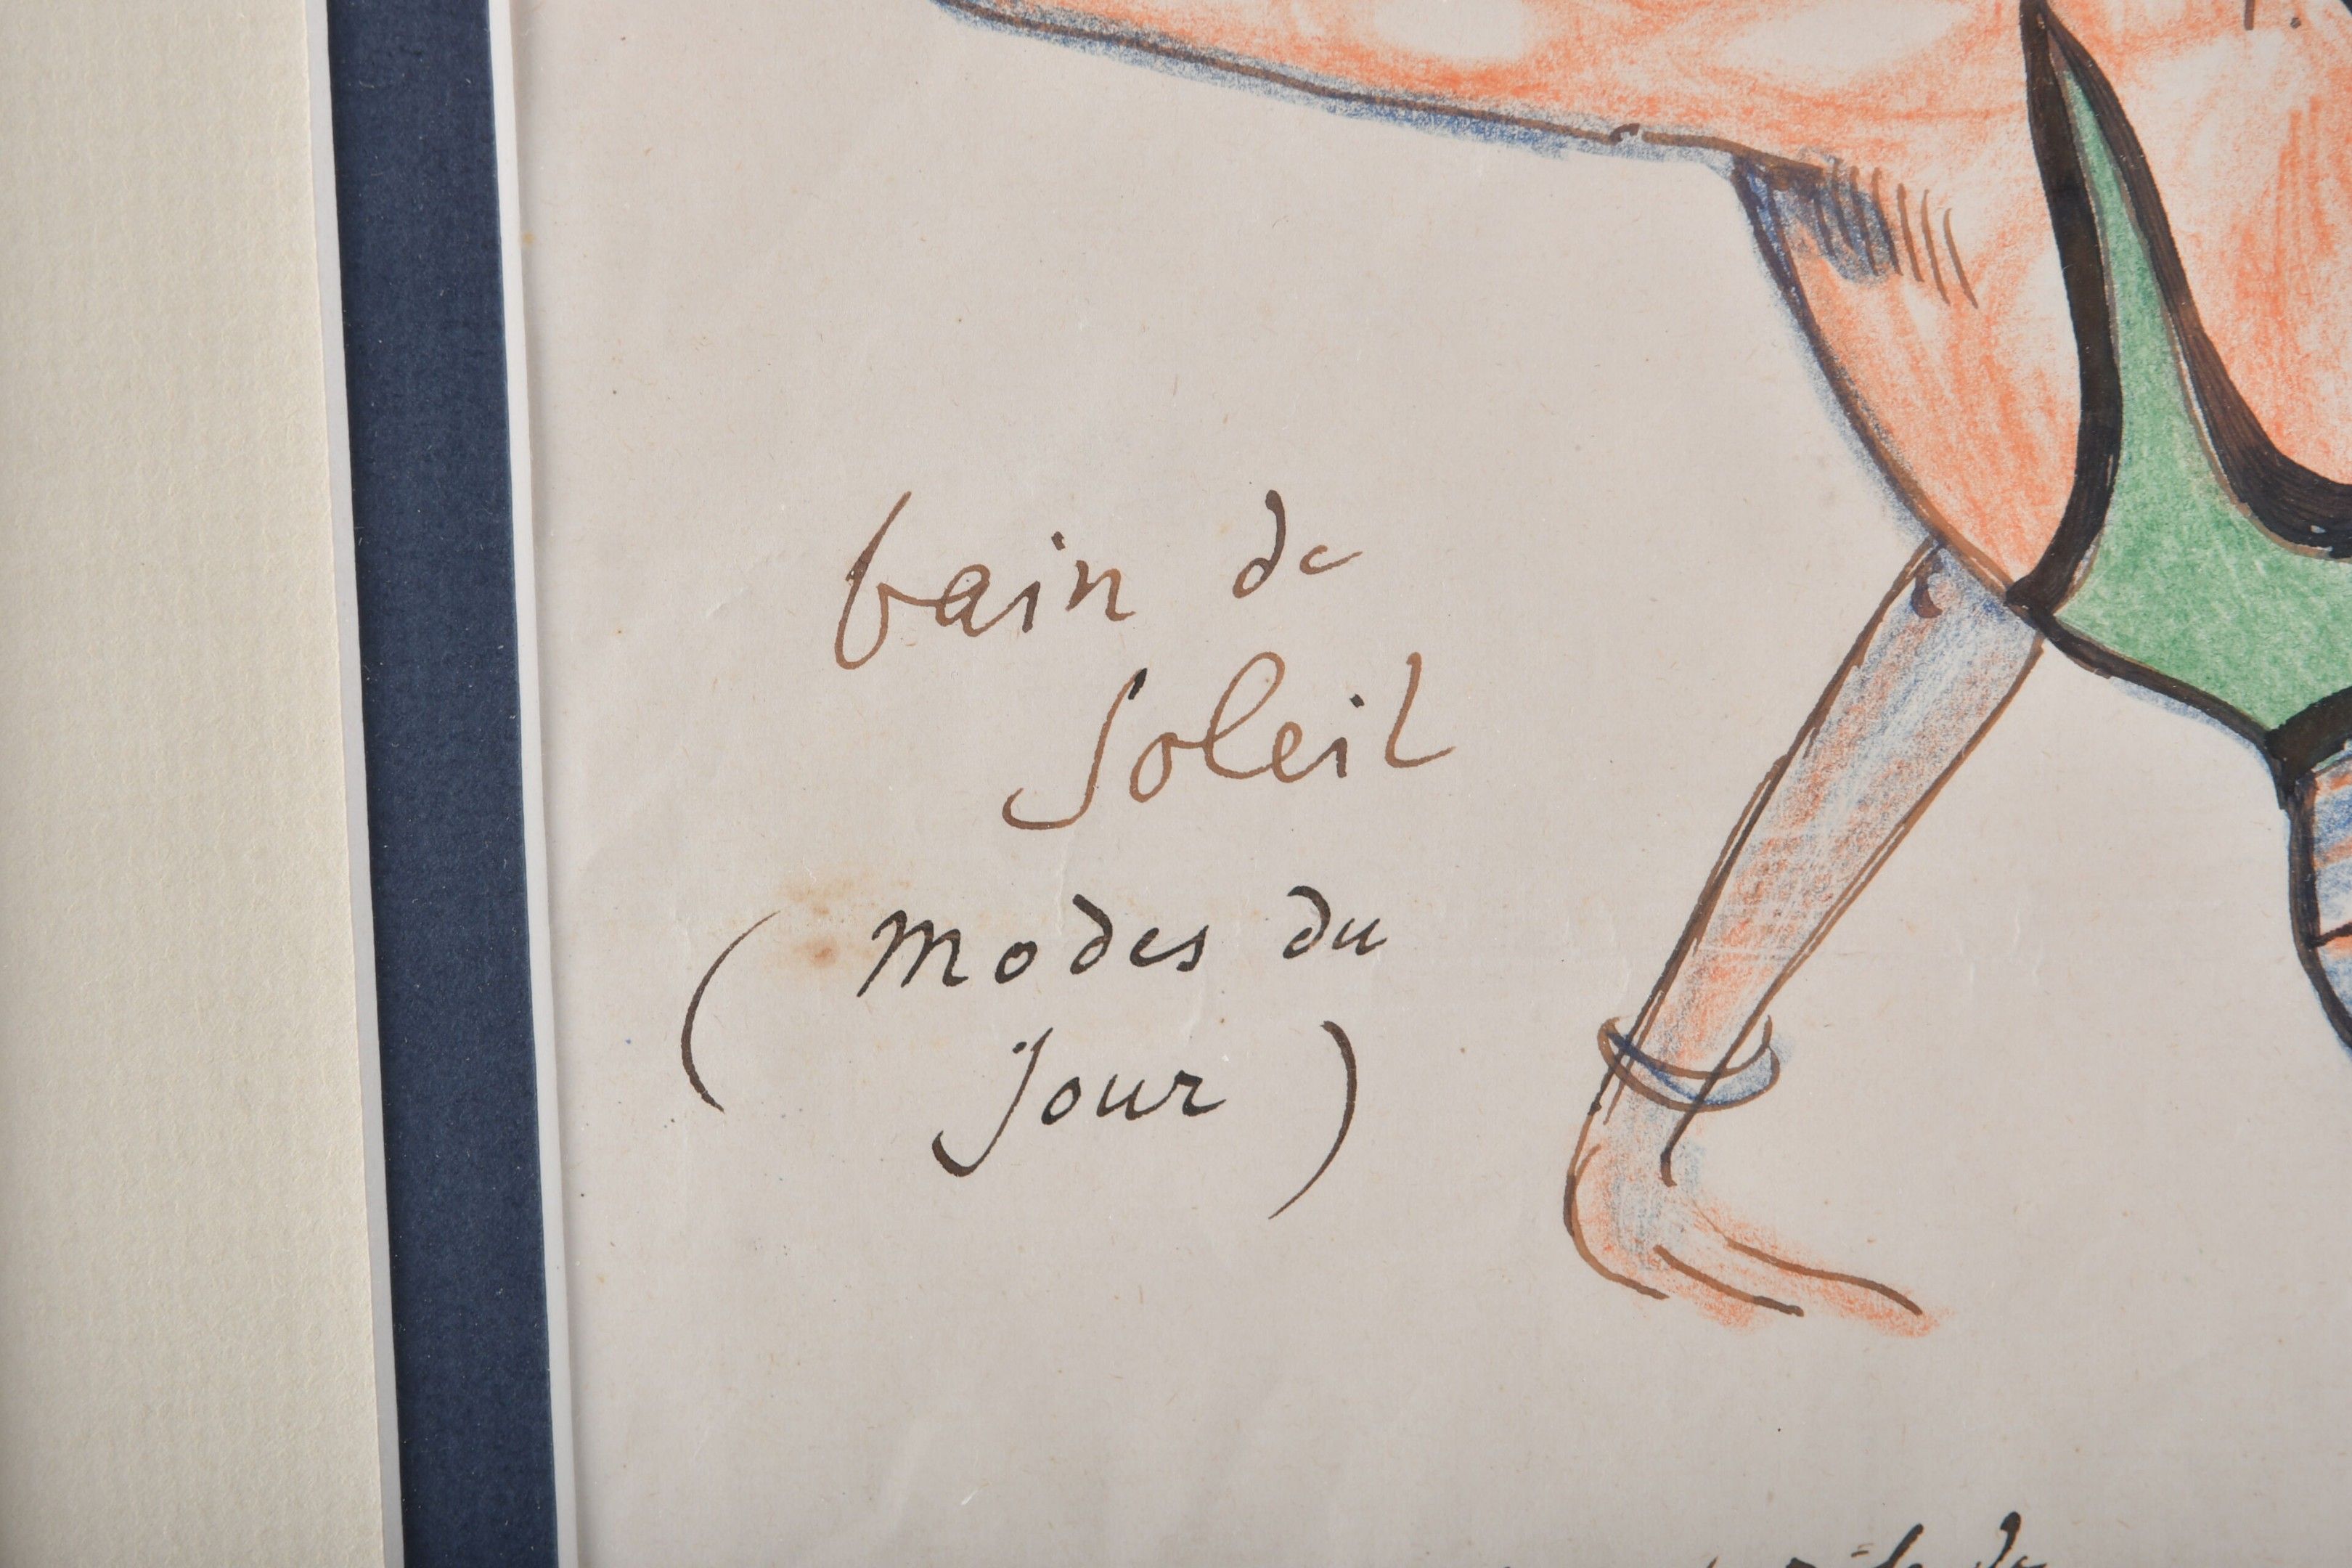 bain de
soleil
(modes du
jour)